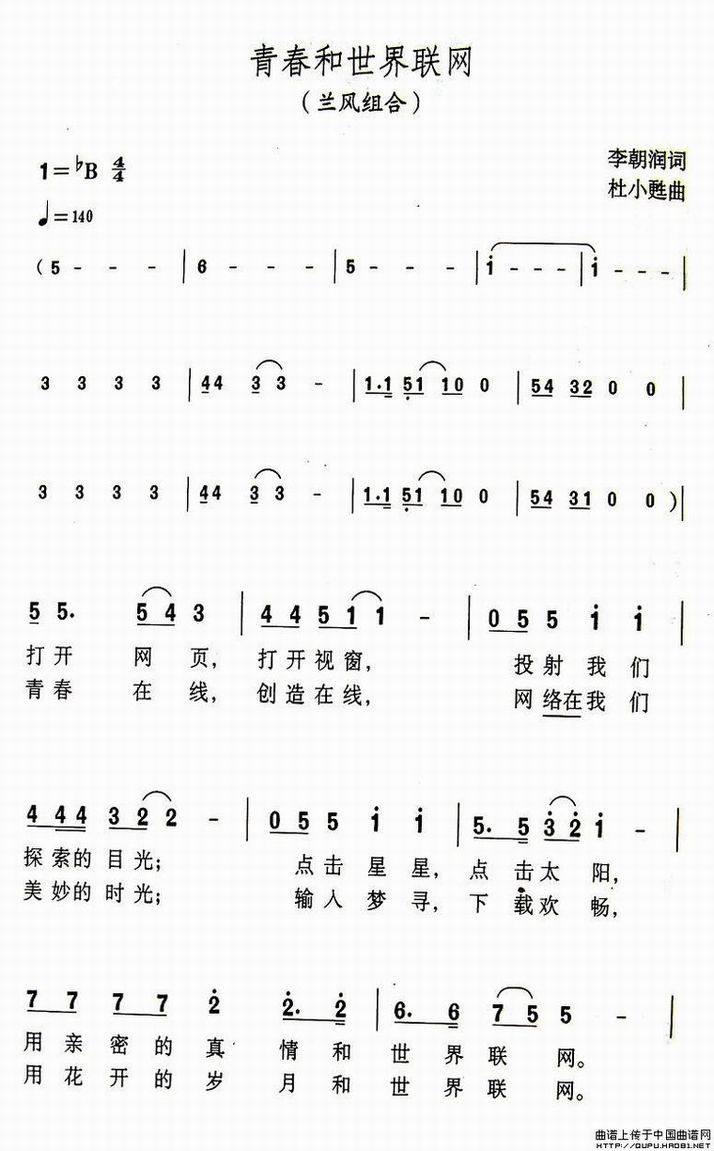 青春和世界联网
(兰风组合)
1=♭B 4/4
李朝润词
♩=140
杜小甦曲
(5 - - - | 6 - - - | 5 - - - | i - - - | i - - - |
3 3 3 3 | 44 3 3 - | 1.1 51 10 0 | 54 32 0 0 |
3 3 3 3 | 44 3 3 - | 1.1 51 10 0 | 54 31 0 0 )|
5 5. 5 4 3 | 4 4 5 1 1 - | 0 5 5 i i
打开 网页, 打开视窗, 投射我们
青春 在线, 创造在线, 网络在我们
4 44 3 2 2 - | 0 5 5 i i | 5. 5 3 2 i -
探索的目光; 点击星星, 点击太阳,
美妙的时光; 输人梦寻, 下载欢畅,
7 7 7 7 2 2. 2 | 6. 6 7 5 5 - |
用亲密的真情和世界联网。
用花开的岁月和世界联网。
曲谱上传于中国曲谱网
http://QUPU.HAO81.NET